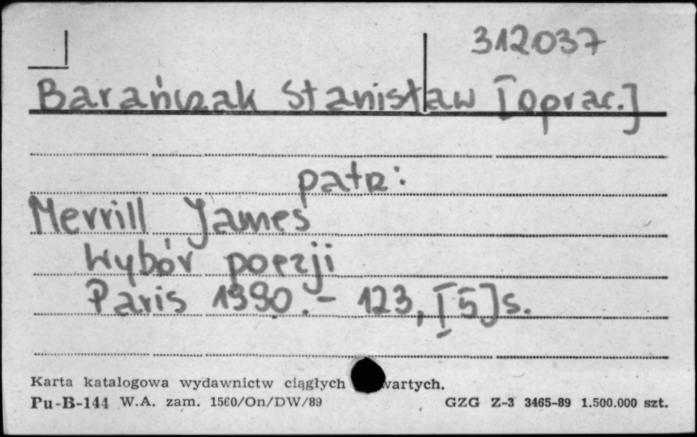 312037
Barańczak Stanisław [oprac.]
patrz:
Merrill James
Wybór poezji
Paris 1990.- 123, [5] s.
Karta katalogowa wydawnictw ciągłych wartych.
Pu-B-144 W.A. zam. 1560/On/DW/89 GZG Z-3 3465-89 1.500.000 szt.